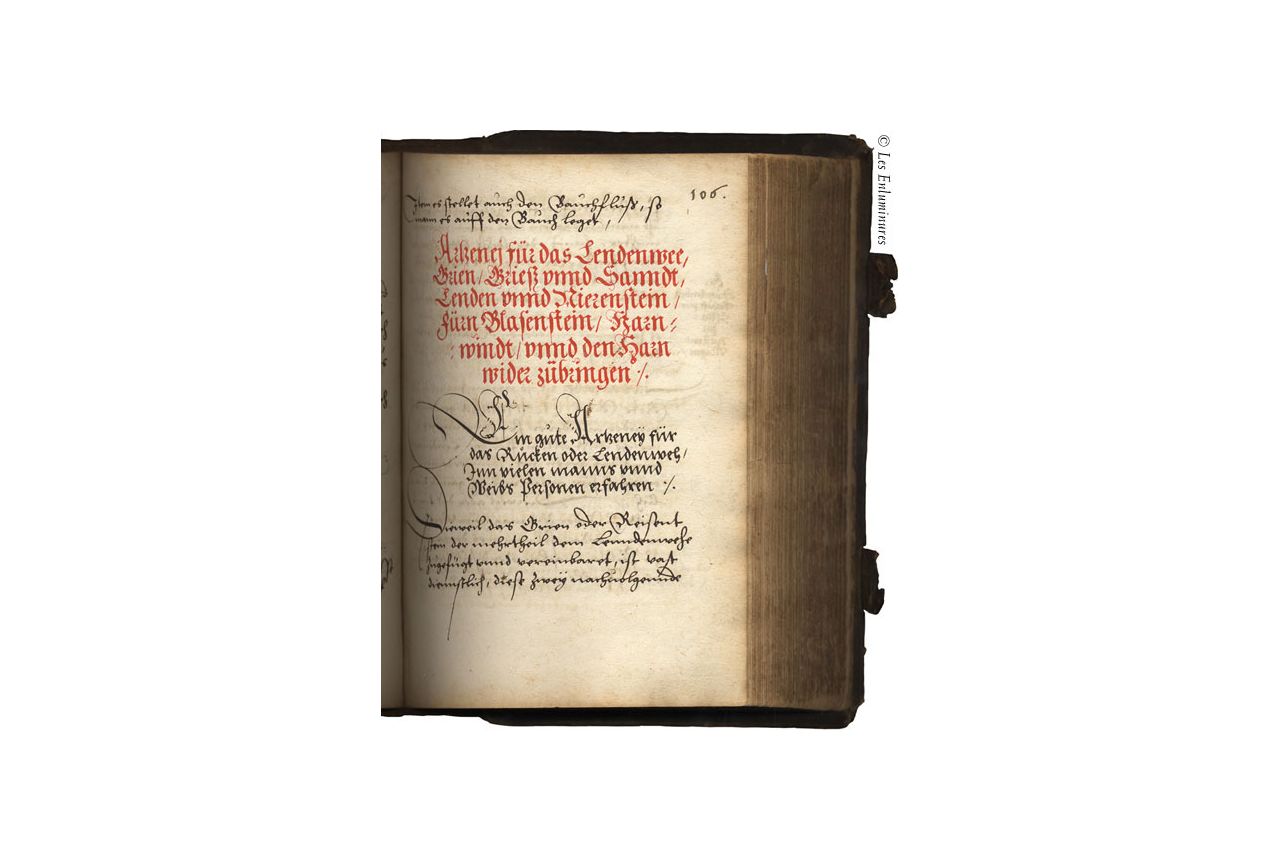 106.
Item es stellet auch den Bauchfluß, so
mann es auff den Bauch leget,
Artzenej für das Lendenwee,
Grien / Grieß vnnd Sanndt,
Lenden vnnd Nierenstein /
fürn Blasenstein / Harn-
windt / vnnd den Harn
wider zübringen ·/.
Ein gute Artzeney für
das Rücken oder Lendenweh,
Inn vielen manns vnnd
Weibs Personen erfahren ·/.
Dieweil das Grien oder Reisent
stein der mehrtheil dem Lenndenwehe
zugefügt vnnd vereinbaret, ist vast
diennstlich, diese zwey nachuolgennde
© Les Enluminures